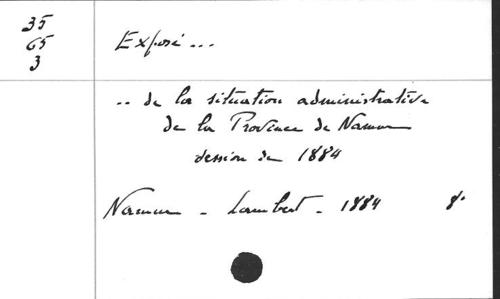 35
65
3
Exposé...
.. de la situation administrative
de la Province de Namur
session de 1884
Namur - Lambert - 1884 8°